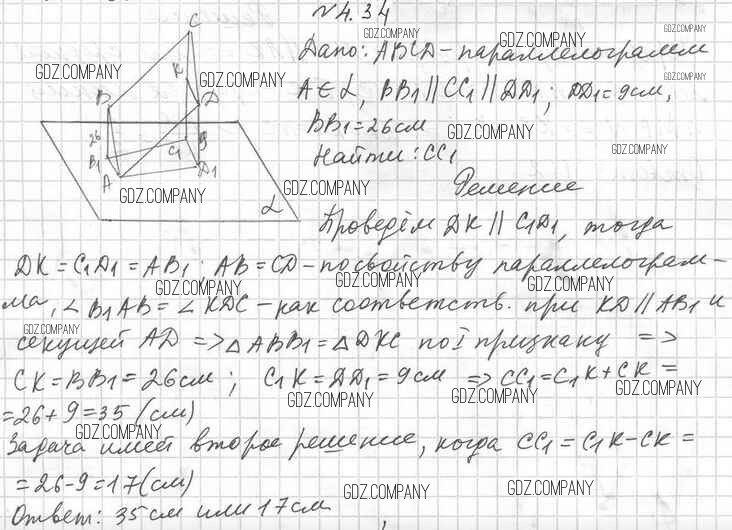 №4.34
Дано: ABCD – параллелограмм
A ∈ α, BB1 || CC1 || DD1; DD1 = 9 см,
BB1 = 26 см
Найти: CC1
Решение
Проведём DK || C1D1, тогда
DK = C1D1 = AB1; AB = CD – по свойству параллелограм-
ма, ∠B1AB = ∠KDC – как соответств. при KD || AB1 и
секущей AD => △ABB1 = △DKC по I признаку =>
CK = BB1 = 26 см; C1K = DD1 = 9 см => CC1 = C1K + CK =
= 26 + 9 = 35 (см)
Задача имеет второе решение, когда CC1 = C1K - CK =
= 26 - 9 = 17 (см)
Ответ: 35 см или 17 см
C
K
B
D
26
9
B1
C1
A
D1
α
GDZ.COMPANY
GDZ.COMPANY
GDZ.COMPANY
GDZ.COMPANY
GDZ.COMPANY
GDZ.COMPANY
GDZ.COMPANY
GDZ.COMPANY
GDZ.COMPANY
GDZ.COMPANY
GDZ.COMPANY
GDZ.COMPANY
GDZ.COMPANY
GDZ.COMPANY
GDZ.COMPANY
GDZ.COMPANY
GDZ.COMPANY
GDZ.COMPANY
GDZ.COMPANY
GDZ.COMPANY